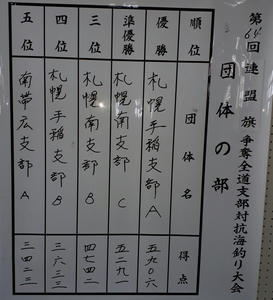 第64回連盟旗争奪全道支部対抗海釣り大会
団体の部
順位 団体名 得点
優勝 札幌手稲支部A 五九〇六
準優勝 札幌南支部C 五二九一
三位 札幌南支部B 四七四二
四位 札幌手稲支部B 三六三三
五位 南帯広支部A 三四二三